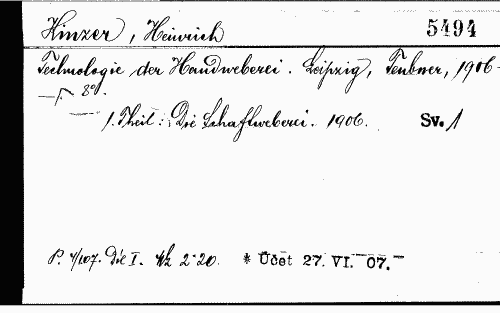 Kinzer, Heinrich 5494
Technologie der Handweberei. Leipzig, Teubner, 1906-
8°.
1. Theil: Die Schaftweberei. 1906. Sv. 1
P. 4/107. Die I. Mk 2·20. * Účet 27. VI. 07.